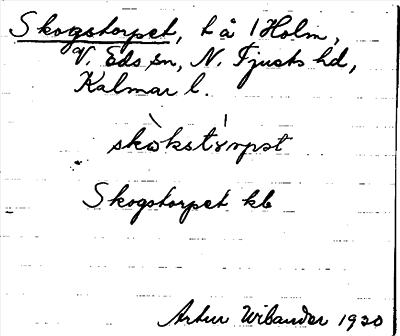 Skogstorpet, t å 1 Holm,
V. Eds sn, N. Tjusts hd,
Kalmar l.
skòkstórpət
Skogstorpet kb
Artur Wibander 1920